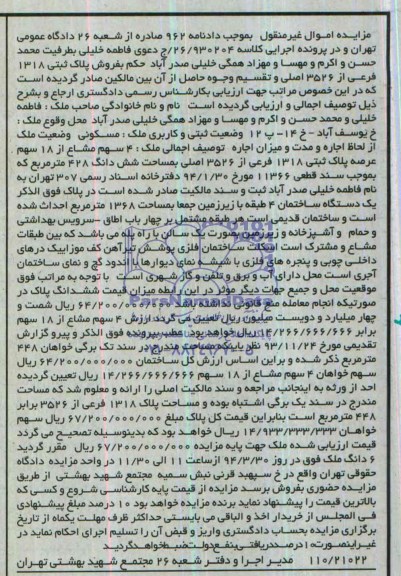 مزایده اموال غیرمنقول بموجب دادنامه ۹۶۲ صادره از شعبه ۲۶ دادگاه عمومی
تهران و در پرونده اجرایی کلاسه ۲۶/۹۳۰۲۰۴/ج دعوی فاطمه خلیلی بطرفیت محمد
حسن و اکرم و مهسا و مهزاد همگی خلیلی صدر آباد حکم بفروش پلاک ثبتی ۱۳۱۸
فرعی از ۳۵۲۶ اصلی و تقسیم وجوه حاصل از آن بین مالکین صادر گردیده است
که در این خصوص مراتب جهت ارزیابی بکارشناس رسمی دادگستری ارجاع و بشرح
ذیل توصیف اجمالی و ارزیابی گردیده است نام و نام خانوادگی صاحب ملک : فاطمه
خلیلی و محمد حسن و اکرم و مهسا و مهزاد همگی خلیلی صدر آباد محل وقوع ملک :
خ یوسف آباد - خ ۱۴ - پ ۱۲ وضعیت ثبتی و کاربری ملک : مسکونی وضعیت ملک
از لحاظ اجاره و مدت و میزان اجاره توصیف اجمالی ملک : ۴ سهم مشاع از ۱۸ سهم
عرصه پلاک ثبتی ۱۳۱۸ فرعی از ۳۵۲۶ اصلی بمساحت شش دانگ ۴۲۸ مترمربع که
بموجب سند قطعی ۱۱۳۶۶ مورخ ۹۴/۱/۳۰ دفترخانه اسناد رسمی ۳۰۷ تهران به
نام فاطمه خلیلی صدر آباد ثبت و سند مالکیت صادر شده است در پلاک فوق الذکر
یک دستگاه ساختمان ۴ طبقه با زیرزمین جمعا بمساحت ۱۳۶۸ مترمربع احداث شده
است و ساختمان قدیمی است هر طبقه مشتمل بر چهار باب اطاق - سرویس بهداشتی
و حمام و آشپزخانه و زیرزمین بصورت یک سالن با راه پله می باشد که بین طبقات
مشاع و مشترک است اسکلت ساختمان فلزی پوشش تیرآهن کف موزاییک درهای
داخلی چوبی و پنجره های فلزی با شیشه نمای دیوارها با اندود گچ و نمای ساختمان
آجری است محل دارای آب و برق و تلفن و گاز شهری است با توجه به مراتب فوق
موقعیت محل و جمیع جهات دیگر موثر در این رابطه میزان قیمت ششدانگ پلاک در
صورتیکه انجام معامله منع قانونی نداشته باشد ۶۴/۲۰۰/۰۰۰/۰۰۰ ریال شصت و
چهار میلیارد و دویست میلیون ریال تعیین می گردد ارزش ۴ سهم مشاع از ۱۸ سهم
برابر ۱۴/۲۶۶/۶۶۶/۶۶۶ ریال خواهد بود عطف پرونده فوق الذکر و پیرو گزارش
تقدیمی مورخ ۹۳/۱۱/۲۴ نظر باینکه مساحت مندرج در سند تک برگی خواهان ۴۴۸
مترمربع ذکر شده و براین اساس ارزش کل ساختمان ۶۴/۲۰۰/۰۰۰/۰۰۰ ریال
سهم خواهان ۴ سهم مشاع از ۱۸ سهم ۱۴/۲۶۶/۶۶۶/۶۶۶ ریال تعیین گردیده
احد از ورثه به اینجانب مراجعه و سند مالکیت اصلی را ارائه و معلوم شد که مساحت
مندرج در سند یک برگی اشتباه بوده و مساحت پلاک ۱۳۱۸ فرعی از ۳۵۲۶ برابر
۴۴۸ مترمربع است بنابراین قیمت کل پلاک مبلغ ۶۷/۲۰۰/۰۰۰/۰۰۰ ریال سهم
خواهان ۱۴/۹۳۳/۳۳۳/۳۳۳ ریال خواهد بود که بدینوسیله تصحیح می گردد
قیمت ارزیابی شده ملک جهت پایه مزایده ۶۷/۲۰۰/۰۰۰/۰۰۰ ریال مقرر گردید
۶ دانگ ملک فوق در روز ۹۴/۳/۳۰ ازساعت ۱۱ الی ۱۱/۳۰ در واحد مزایده دادگاه
حقوقی تهران واقع در خ سپهبد قرنی نبش سمیه مجتمع شهید بهشتی از طریق
مزایده حضوری بفروش برسد مزایده از قیمت پایه کارشناسی شروع و کسی که
بالاترین قیمت را پیشنهاد نماید برنده مزایده خواهد بود ۱۰ درصد مبلغ پیشنهادی
فی المجلس از خریدار اخذ و الباقی می بایستی حداکثر ظرف مهلت یکماه از تاریخ
برگزاری مزایده بحساب دادگستری واریز و قبض آن را تسلیم اجرای احکام نماید در
غیراینصورت ۱۰ درصد دریافتی بنفع دولت ضبط خواهد گردید
۱۱۰/۲۱۰۲۲ مدیر اجرا و دفتر شعبه ۲۶ مجتمع شهید بهشتی تهران